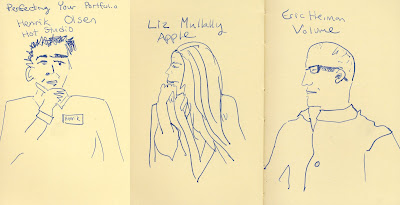 Perfecting Your Portfolio
Henrik Olsen
Hot Studio
Henrik
Liz Mullally
Apple
Eric Heiman
Volume